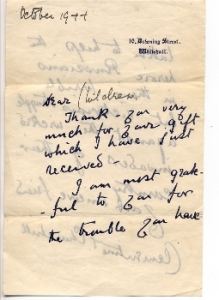 October 1944
10, Downing Street,
Whitehall.
Dear Children
Thank you very
much for your gift
which I have just
received -
I am most grate-
ful to you for
the trouble you have